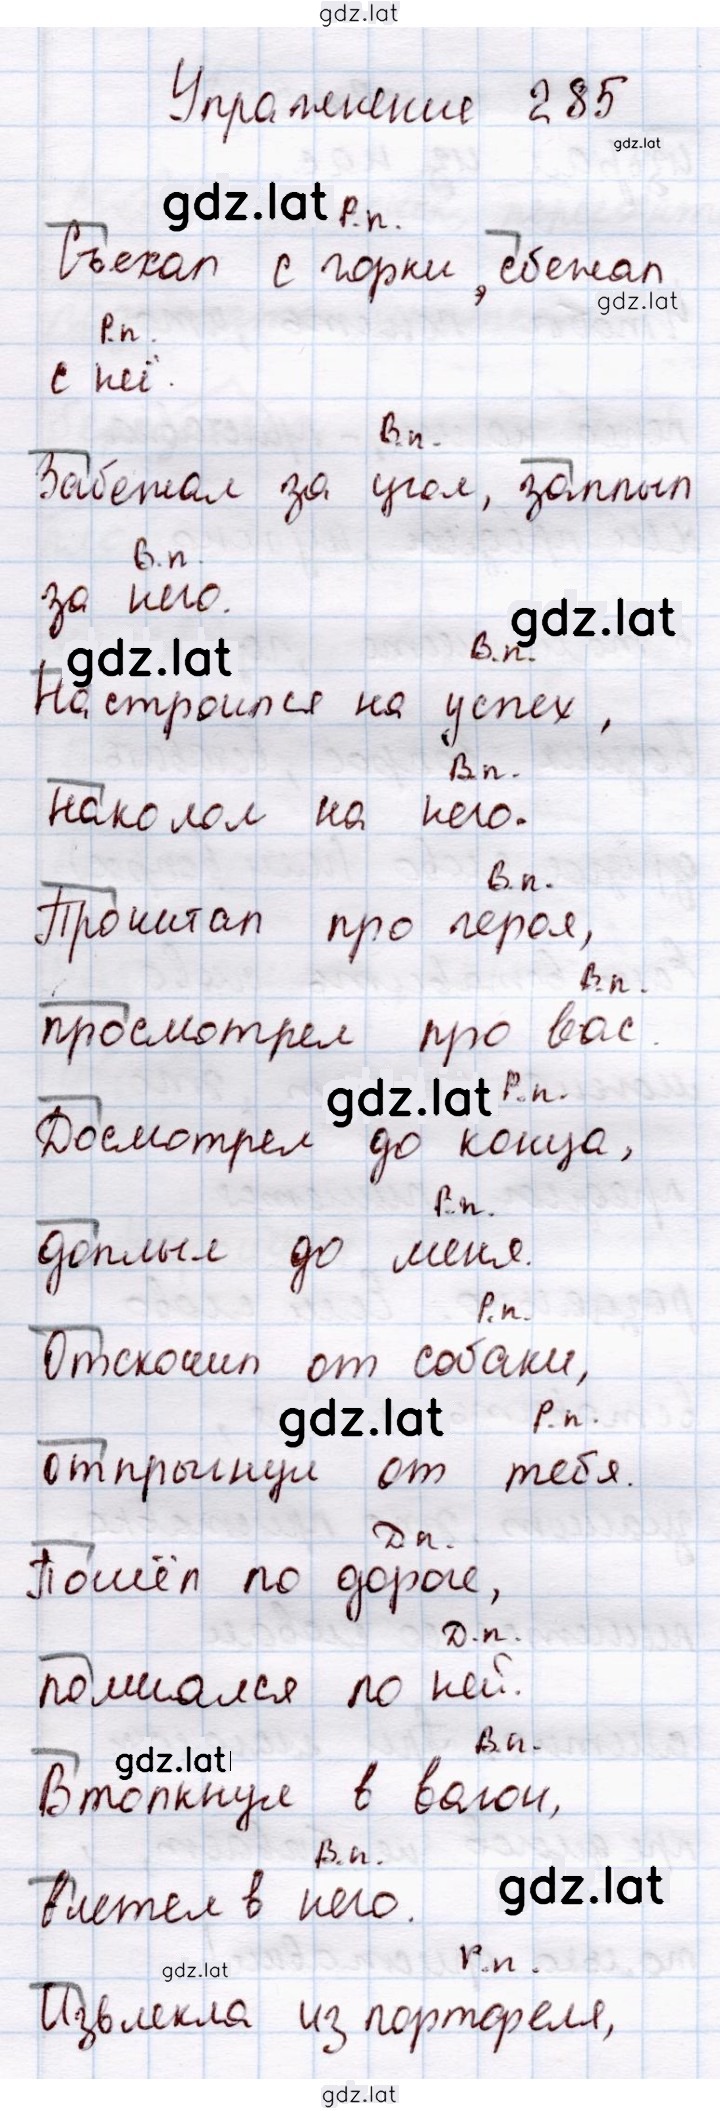 gdz.lat
Упражнение 285
gdz.lat
gdz.lat Р.п.
Съехал с горки, сбежал
gdz.lat
Р.п.
с неё.
В.п.
Забежал за угол, заплыл
В.п.
за него.
gdz.lat
gdz.lat В.п.
Настроился на успех,
В.п.
наколол на него.
В.п.
Прочитал про героя,
В.п.
просмотрел про вас.
gdz.lat Р.п.
Досмотрел до конца,
Р.п.
доплыл до меня.
Р.п.
Отскочил от собаки,
gdz.lat
Р.п.
отпрыгнул от тебя.
Д.п.
Пошёл по дороге,
Д.п.
помчался по ней.
gdz.lat В.п.
Втолкнул в вагон,
В.п.
влетел в него.
gdz.lat
gdz.lat Р.п.
Извлекла из портфеля,
gdz.lat